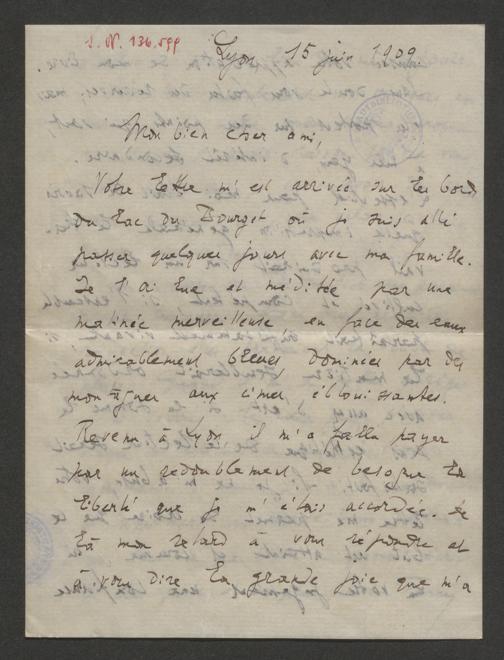 I. N. 136.599
Lyon 15 juin 1909.
Mon bien cher ami,
Votre lettre m'est arrivée sur les bords
du lac du Bourget où je suis allé
passer quelques jours avec ma famille.
Je l'ai lue et méditée par une
matinée merveilleuse en face des eaux
admirablement bleues dominées par des
montagnes aux cimes éblouissantes.
Revenu à Lyon, il m'a fallu payer
par un redoublement de besogne la
liberté que je m'étais accordée. De
là mon retard à vous répondre et
à vous dire la grande joie que m'a